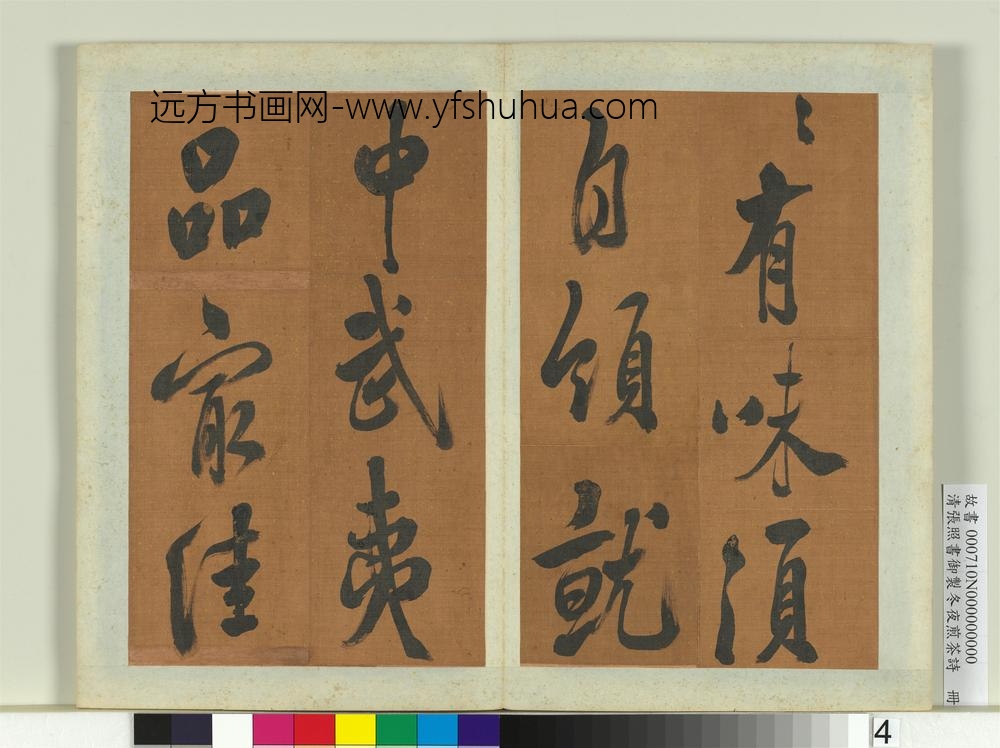 远方书画网-www.yfshuhua.com
〻有味須
自領就
中武夷
品㝡佳
故書 000710N000000000
清張照書御製冬夜煎茶詩 冊
4